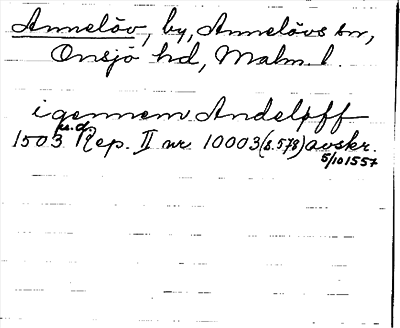 Annelöv, by, Annelövs sn,
Onsjö hd, Malm. l.
igennem Andeløff
u.d.
1503 Rep. II nr 10003 (s. 578) avskr.
5/10 1557